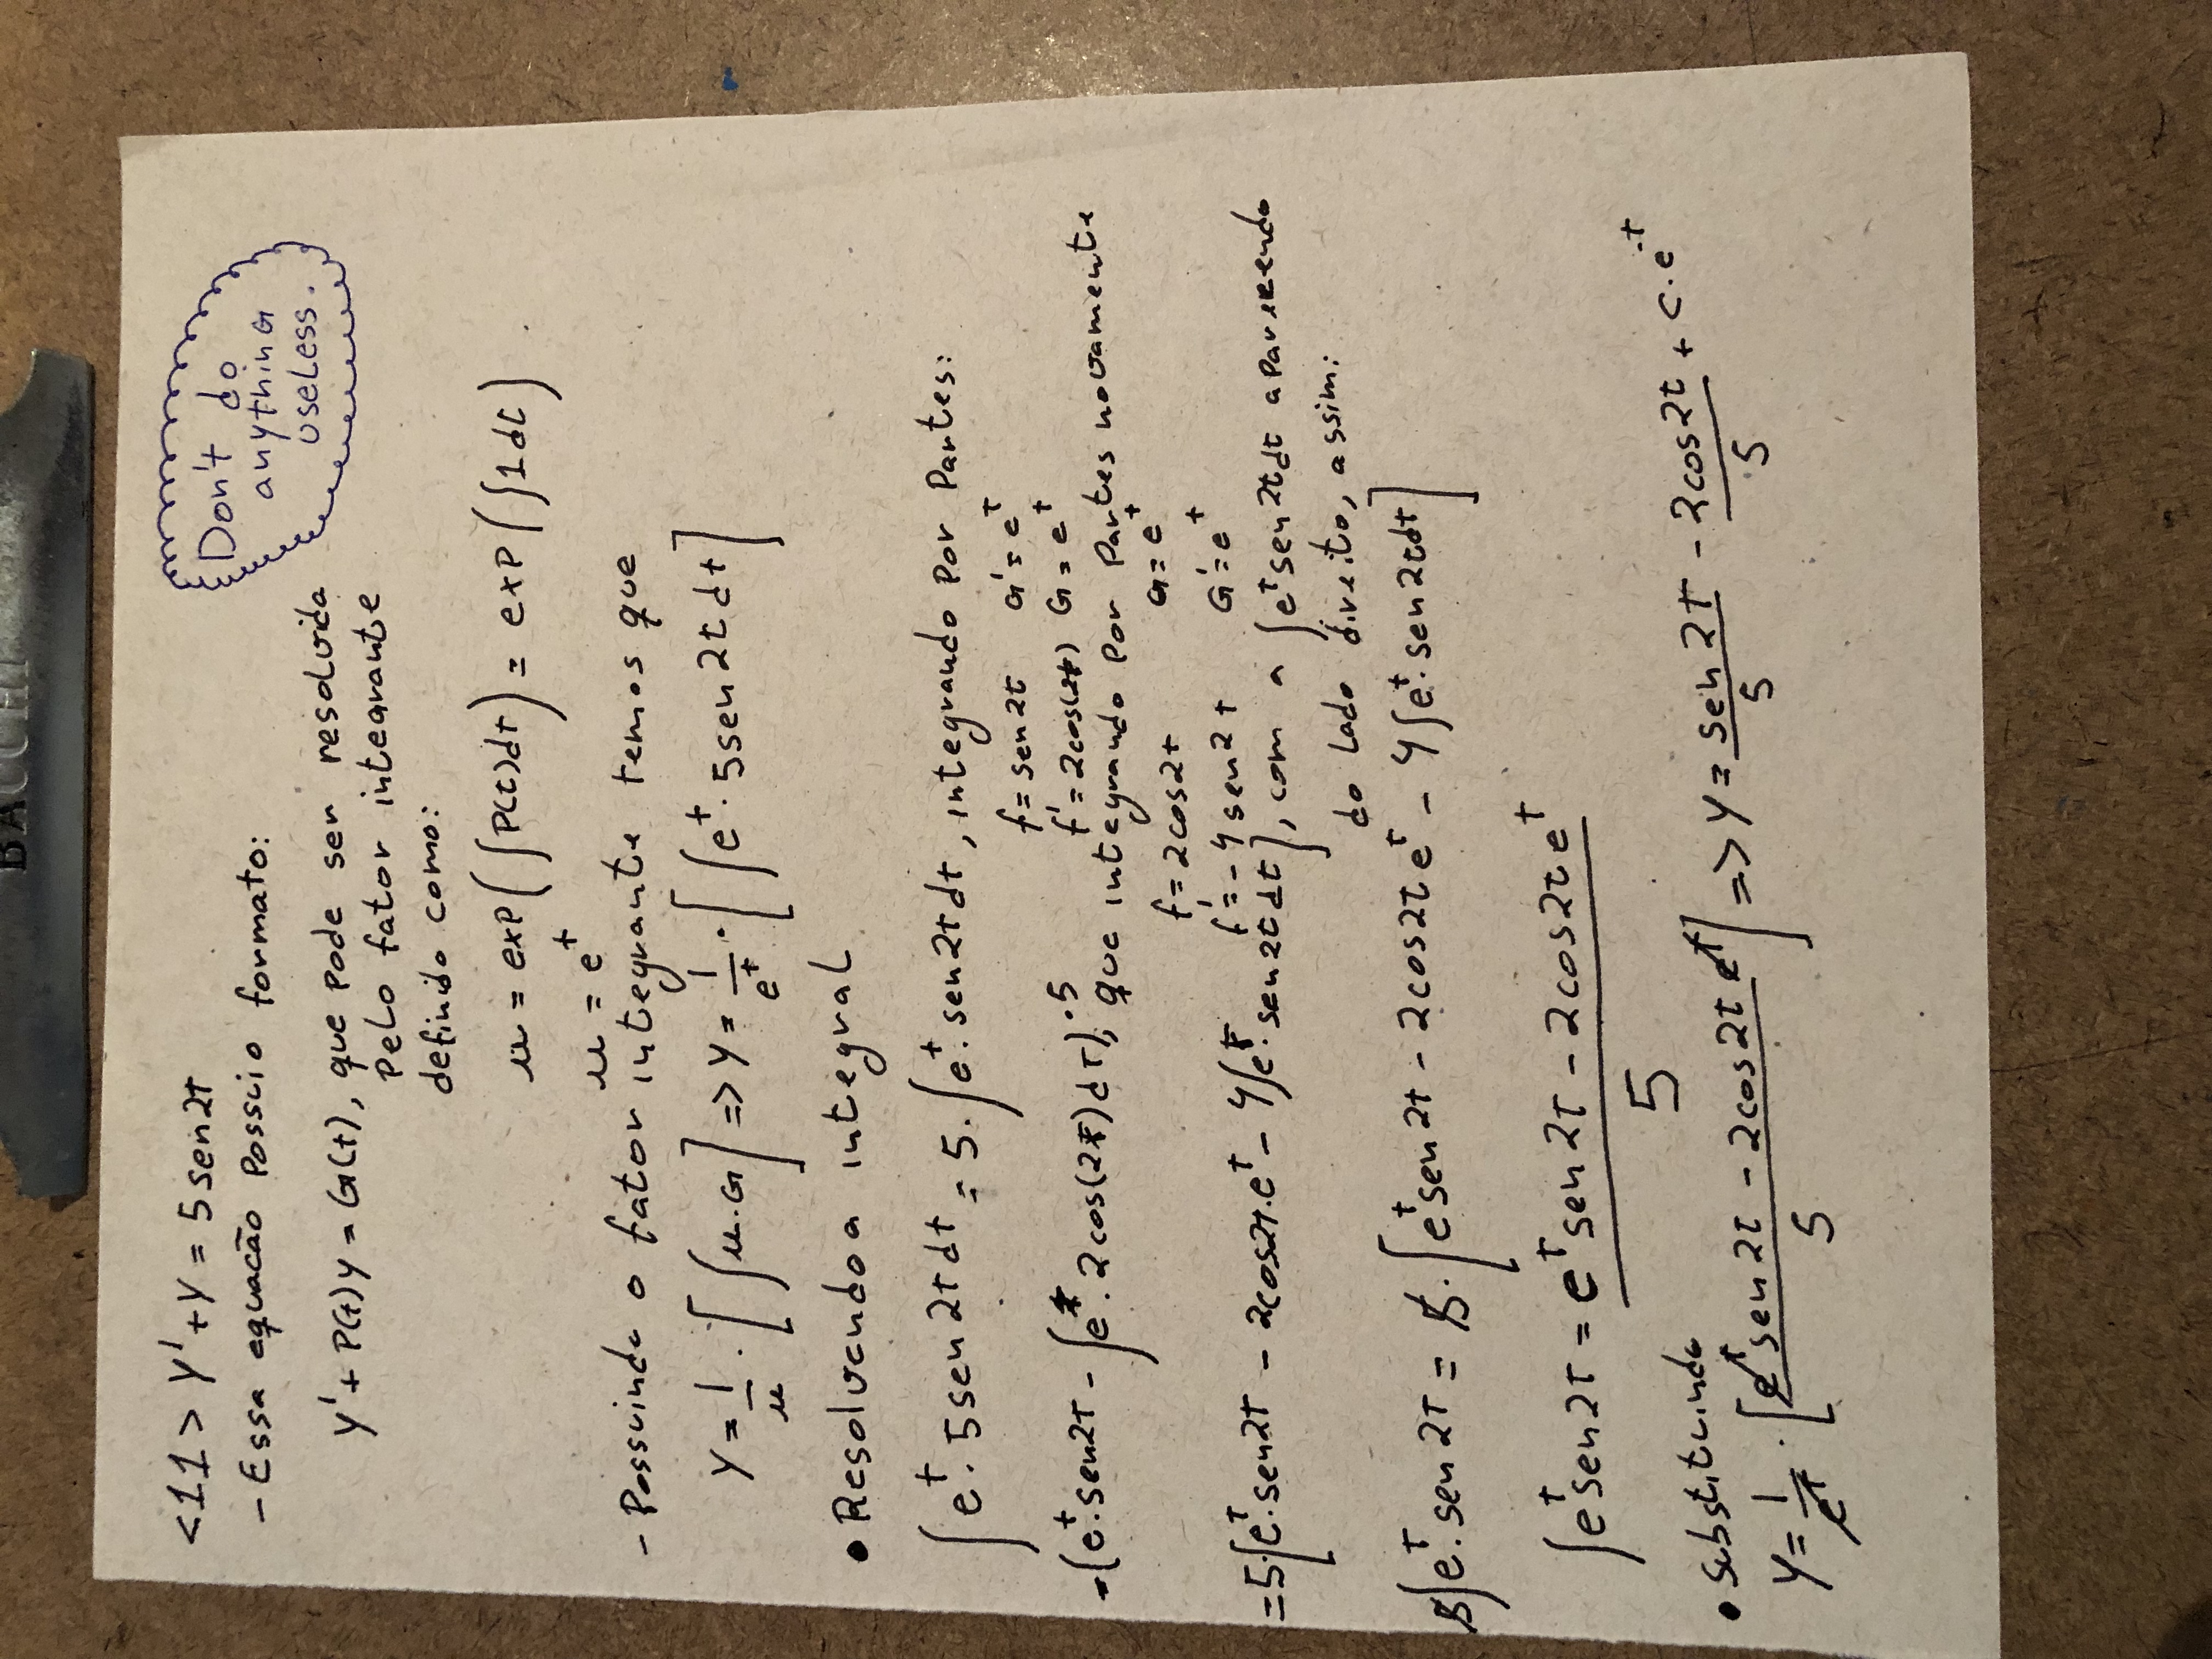 BACCHI
<11> y' + y = 5 sen2t
Don't do
anything
useless.
- Essa equacão possui o formato:
y' + P(t)y = G(t), que pode ser resolvida
pelo fator integrante
definido como:
μ = exp(∫P(t)dt) = exp(∫1dt)
μ = e^t
- Possuindo o fator integrante temos que
y = 1/μ · [∫μ.G] => y = 1/e^t · [∫e^t · 5sen2t dt]
• Resolvendo a integral
∫e^t · 5sen2t dt = 5 · ∫e^t · sen2t dt, integrando por partes:
f = sen2t G' = e^t
f' = 2cos(2t) G = e^t
= (e^t · sen2t - ∫e^t · 2cos(2t)dt) · 5, que integrando por partes novamente
f = 2cos2t G = e^t
f' = -4sen2t G' = e^t
= 5·[e^t · sen2t - 2cos2t · e^t - 4∫e^t · sen2t dt], com a ∫e^t sen2t dt aparecendo
do lado direito, assim:
5∫e^t · sen2t = 5 · [e^t sen2t - 2cos2t e^t - 4∫e^t · sen2t dt]
∫e^t sen2t = (e^t sen2t - 2cos2t e^t)/5
• Substituindo
y = 1/e^t · [(e^t sen2t - 2cos2t e^t)/5] => y = sen2t/5 - 2cos2t/5 + c · e^-t